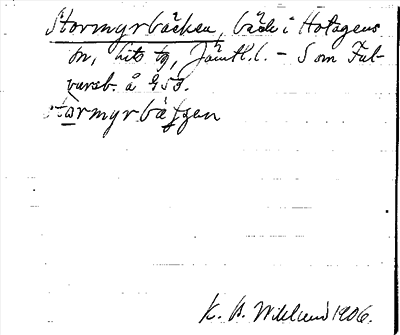 Stormyrbäcken, bäck i Hotagens
sn, Lits tg, Jämtl. l. – Som Ful-
vursb. å 953.
stormyrbäʃʃen
K. B. Wiklund 1906.